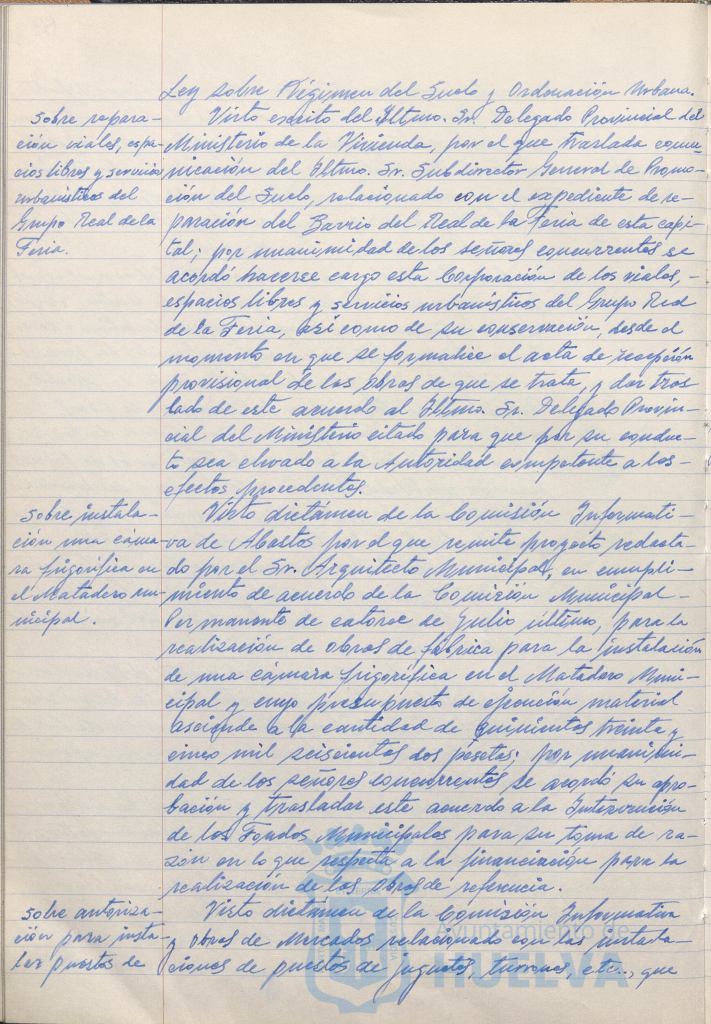 Ley sobre Régimen del Suelo y Ordenación Urbana.
Sobre repara-
ción viales, espa-
cios libres y servicios
urbanísticos del
Grupo Real de la
Feria.
Visto escrito del Iltmo. Sr. Delegado Provincial del
Ministerio de la Vivienda, por el que traslada comu-
nicación del Iltmo. Sr. Subdirector General de Promo-
ción del Suelo, relacionado con el expediente de re-
paración del Barrio del Real de la Feria de esta capi-
tal; por unanimidad de los señores concurrentes se
acordó hacerse cargo esta Corporación de los viales, -
espacios libres y servicios urbanísticos del Grupo Real
de la Feria, así como de su conservación, desde el
momento en que se formalice el acta de recepción
provisional de las obras de que se trata, y dar tras
lado de este acuerdo al Iltmo. Sr. Delegado Provin-
cial del Ministerio citado para que por su conduc-
to sea elevado a la Autoridad competente a los -
efectos procedentes.
Sobre instala-
ción una cáma-
ra frigorífica en
el Matadero mu-
nicipal.
Visto dictámen de la Comisión Informati-
va de Abastos por el que remite proyecto redacta-
do por el Sr. Arquitecto Municipal, en cumpli-
miento de acuerdo de la Comisión Municipal -
Permanente de catorce de Julio último, para la
realización de obras de fábrica para la instalación
de una cámara frigorífica en el Matadero Muni-
cipal y cuyo presupuesto de ejecución material
asciende a la cantidad de quinientas treinta y
cinco mil seiscientas dos pesetas; por unanimi-
dad de los señores concurrentes se acordó su apro-
bación y trasladar este acuerdo a la Intervención
de los Fondos Municipales para su toma de ra-
zón en lo que respecta a la financiación para la
realización de las obras de referencia.
Sobre autoriza-
ción para insta-
lar puestos de
Visto dictámen de la Comisión Informativa
y obras de Mercados relacionado con las instala-
ciones de puestos de juguetes, turrones, etc.., que
Ayuntamiento de
HUELVA